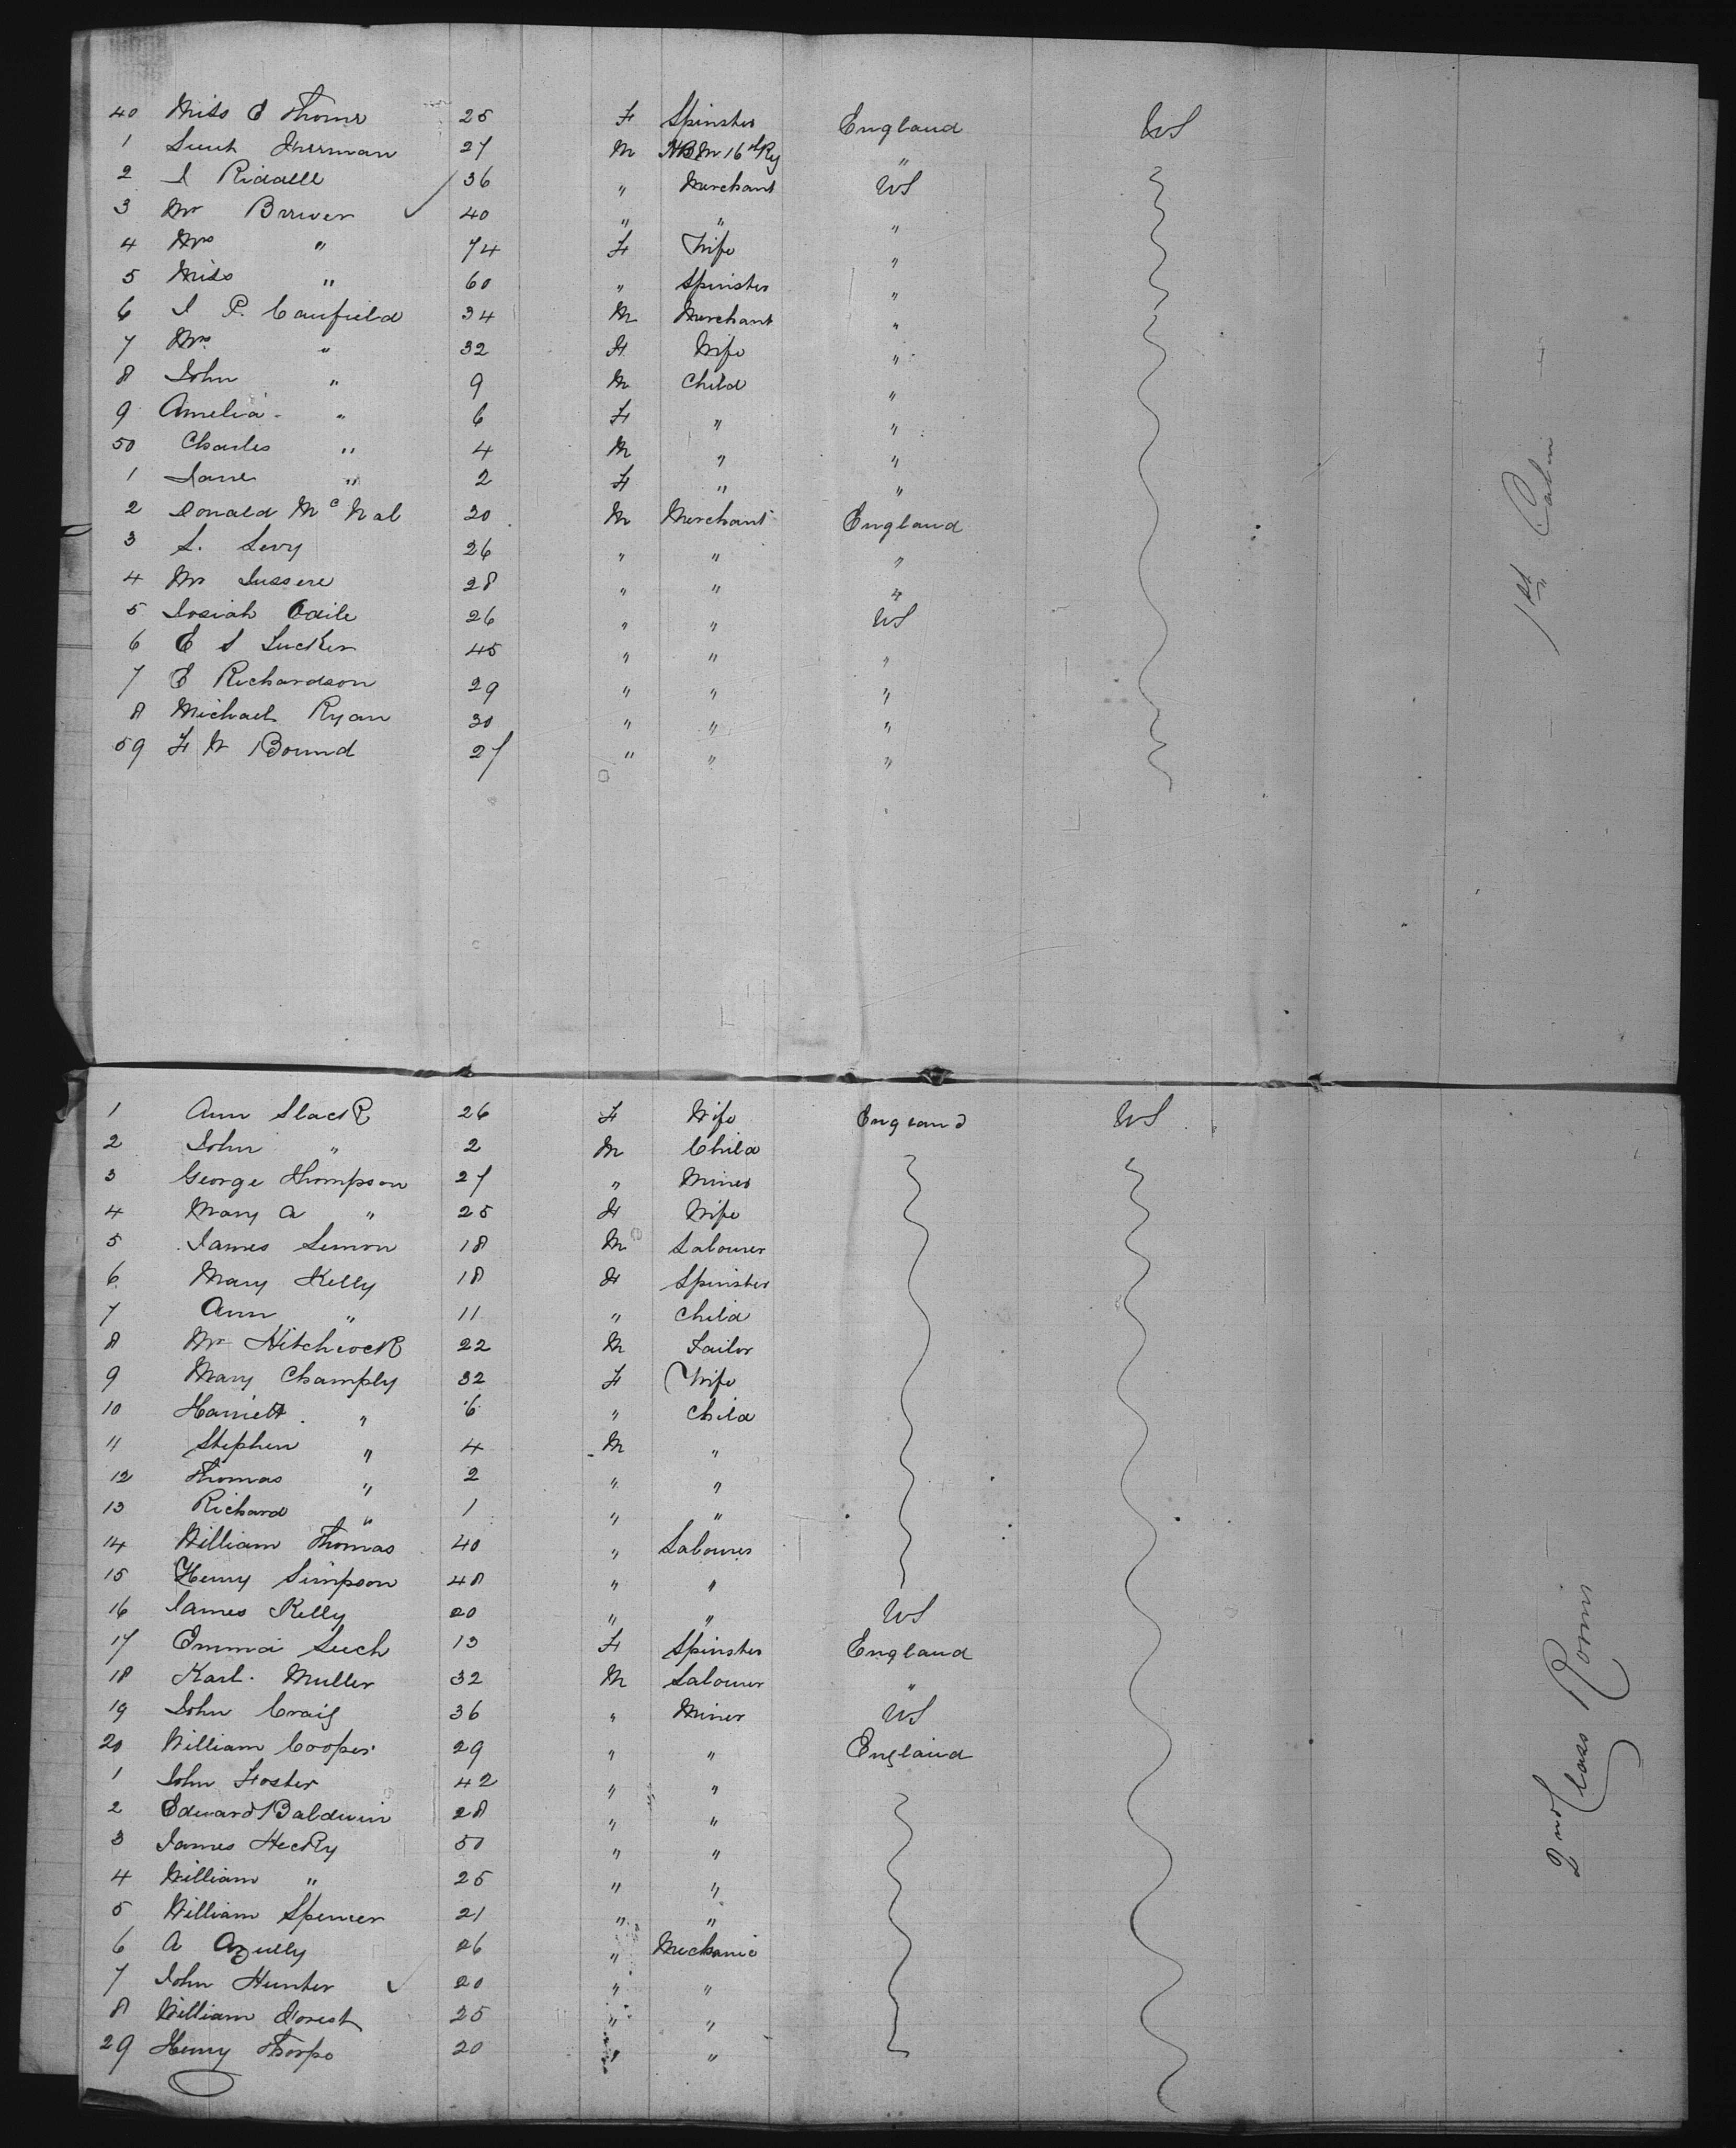 40 Miss E Thorne 25 F Spinster England US
1 Lieut Inerman 27 M HBM 16th Rg "
2 J Riddell 36 " Merchant US
3 Mr Brewer 40 " " "
4 Mrs " 74 F Wife "
5 Miss " 60 " Spinster "
6 J P. Caufield 34 M Merchant "
7 Mrs " 32 F Wife "
8 John " 9 M Child "
9 Amelia " 6 F " "
50 Charles " 4 M " "
1 Jane " 2 F " "
2 Donald Mc Nab 30 M Merchant England
3 S. Levy 26 " " "
4 Mr 28 " " "
5 Josiah 26 " " US
6 E S Tucker 45 " " "
7 E Richardson 29 " " "
8 Michael Ryan 30 " " "
59 F W Bound 27 " " "
1st Cabin
1 Ann Slack 26 F Wife England US
2 John " 2 M Child
3 George Thompson 27 " Miner
4 Mary A " 25 F Wife
5 James Lemon 18 M Labourer
6 Mary Kelly 18 F Spinster
7 Ann " 11 " Child
8 Mr Hitchcock 22 M Tailor
9 Mary Champly 32 F Wife
10 Harriett " 6 " Child
11 Stephen " 4 M "
12 Thomas " 2 " "
13 Richard " 1 " "
14 William Thomas 40 " Labourer
15 Henry Simpson 48 " "
16 James Kelly 20 " " US
17 Emma Such 13 F Spinster England
18 Karl Muller 32 M Labourer "
19 John Craig 36 " Miner US
20 William Cooper 29 " " England
1 John Foster 42 " "
2 Edward Baldwin 28 " "
3 James Hecky 50 " "
4 William " 25 " "
5 William Spencer 21 " "
6 A Azully 26 " Mechanic
7 John Hunter 20 " "
8 William Forest 25 " "
29 Henry Thorpe 20 " "
2nd Class Rooms